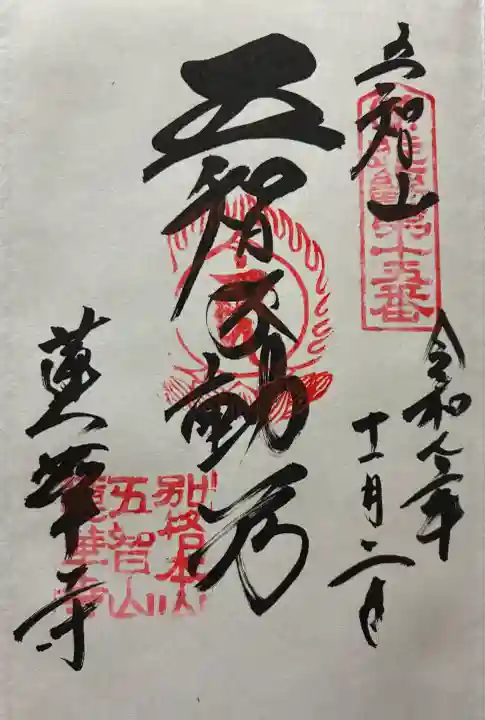 五智山
第十五番
令和年
十一月二日
五智不動尊
蓮華寺
別格本山
五智山
蓮華寺